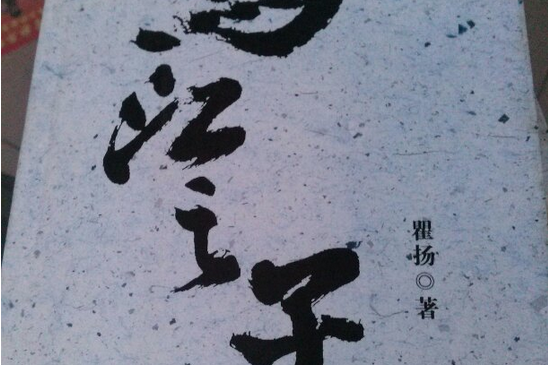 乌江之子
瞿扬◎著